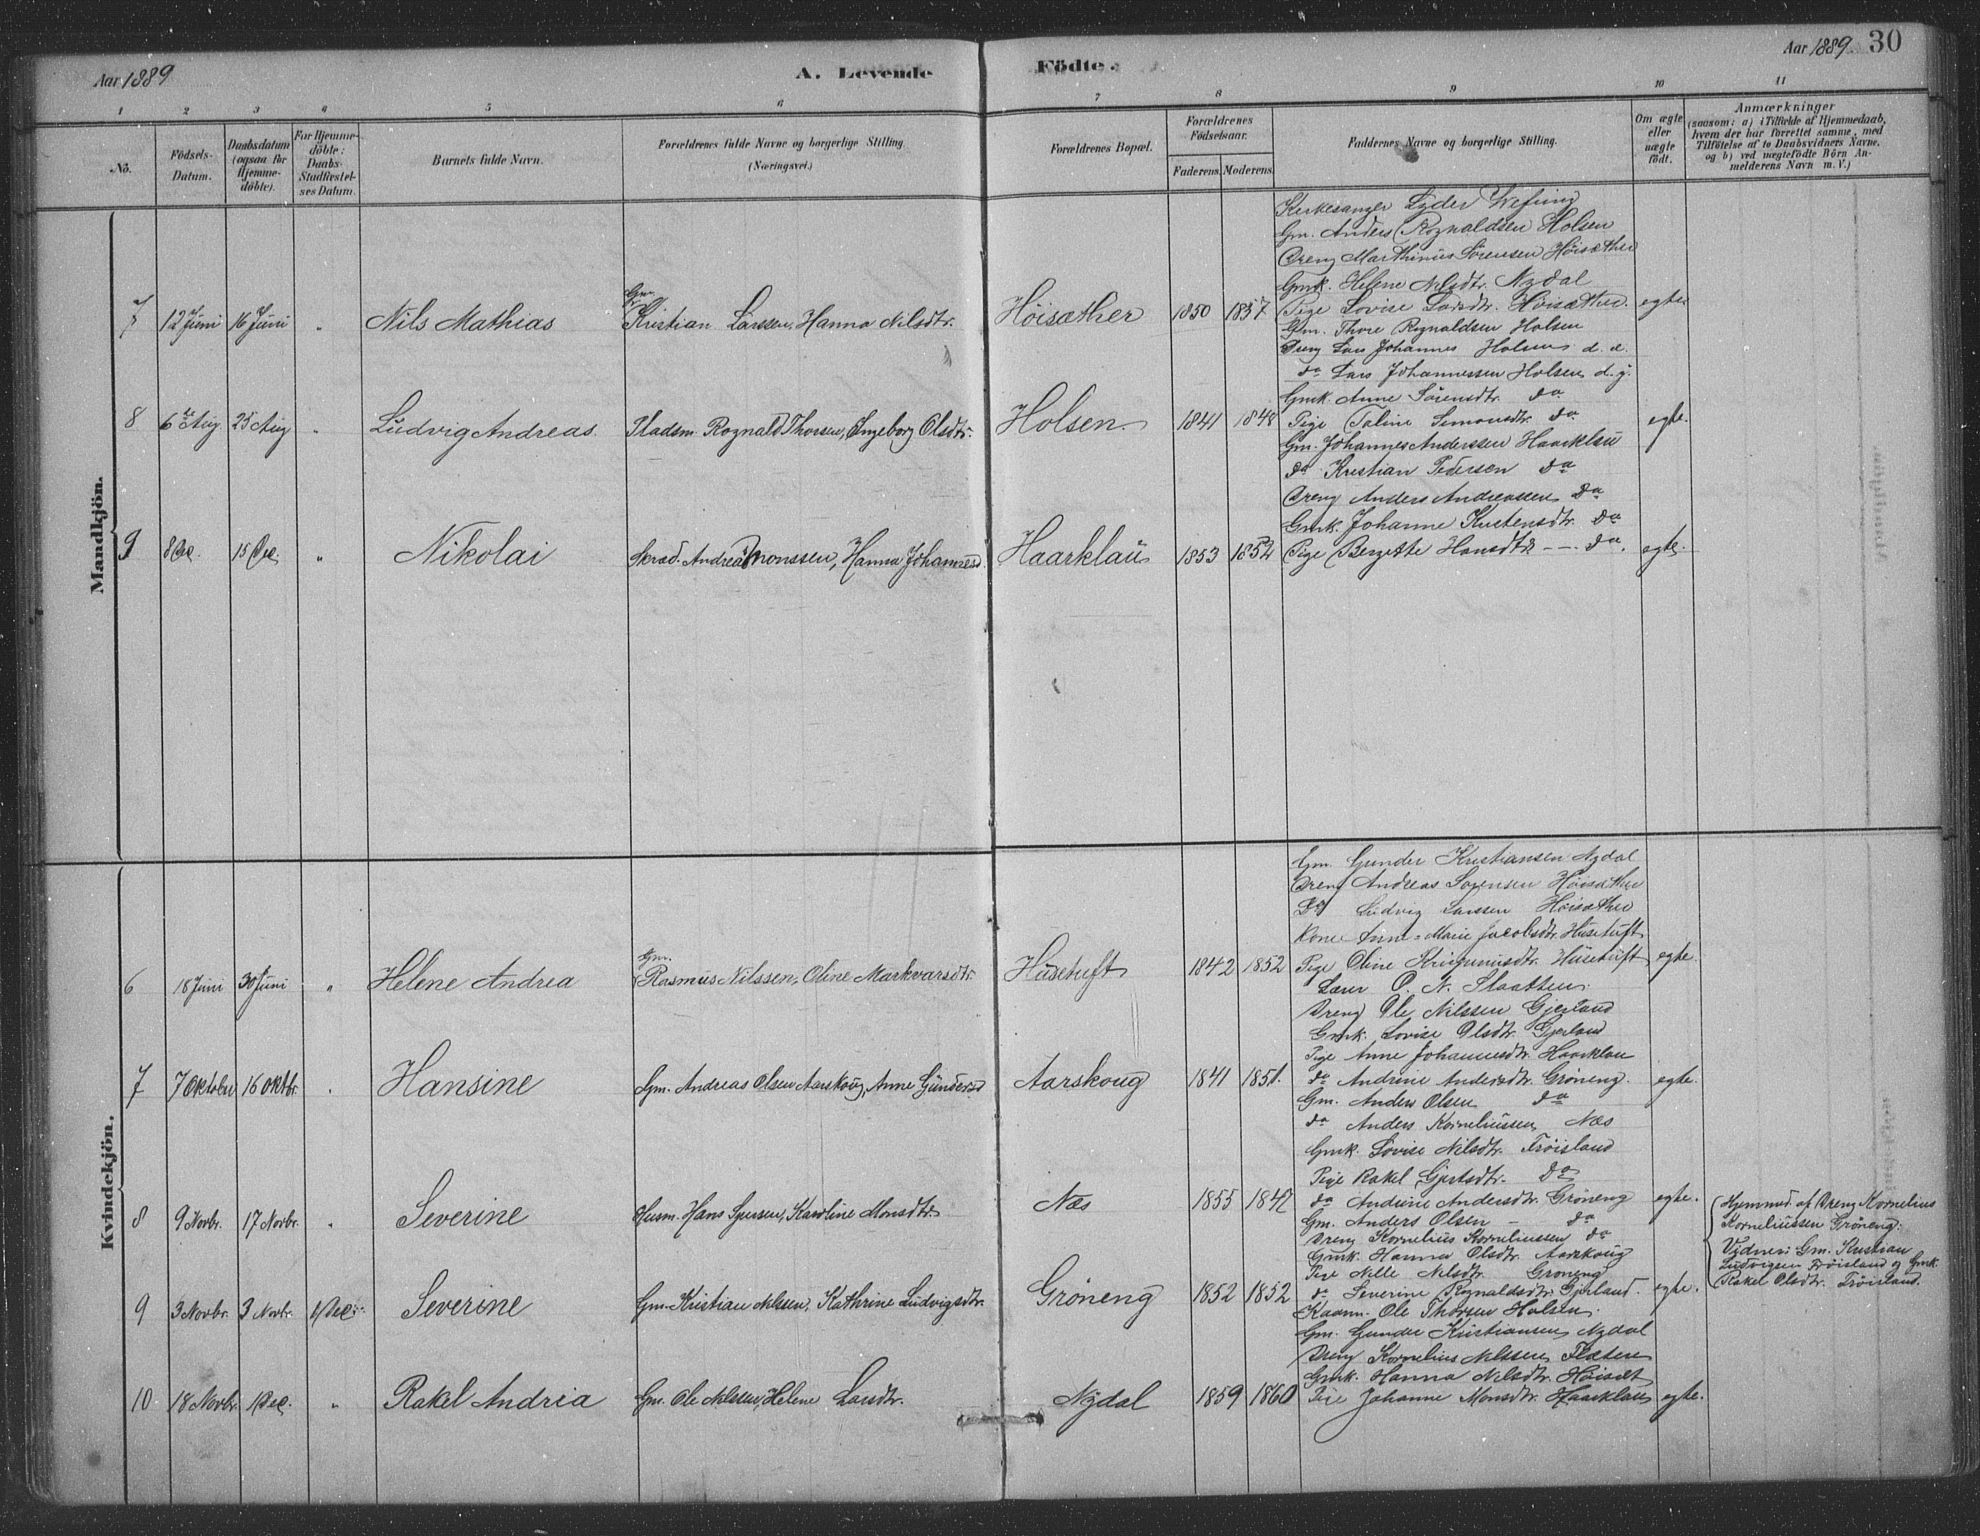 Aar 1889
A. Levende
Födte.
Aar 1889
30
1 2 3 4 5 6 7 8 9 10 11
No.
Födsels-Datum.
Daabsdatum (ogsaa for Hjemme-döbte).
For Hjemme-döbte: Daabs-Stadfæstel-ses Datum.
Barnets fulde Navn.
Forældrenes fulde Navne og borgerlige Stilling.
(Næringsvei.)
Forældrenes Bopæl.
Forældrenes Födselsaar.
Faderens. Moderens.
Faddernes Navne og borgerlige Stilling.
Om ægte eller uægte födt.
Anmærkninger
(saasom: a) i Tilfælde af Hjemmedaab,
hvem der har forrettet samme, med
Tilföielse af to Daabsvidners Navne,
og b) ved uægtefödte Börn An-
melderens Navn m. V.)
Mandkjön.
Kirkesanger Lyder Wefring
Gm. Anders Rognaldsen Holsen
Dreng Marthinus Sörensen Höisæther
Gmk. Helene Nilsdtr. Nydal
7 12 Juni 16 Juni " Nils Mathias Gm. Kristian Larssen, Hanna Nilsdtr. Höisæther 1850 1857 Pige Lovise Larsdtr. Höisæther. egte
Gm. Thore Rognaldsen Holsen
Dreng Lars Johannes Holsen d. e.
do Lars Johannessen Holsen d. y.
Gmk. Anne Sörensdtr. do
8 6te Aug. 25 Aug " Ludvig Andreas. Pladsm. Rognald Thorsen, Ingeborg Olsdtr. Holsen. 1841 1848 Pige Taline Simonsdtr. do egte.
Gm. Johannes Anderssen Haarklau
do Kristian Pedersen do
Dreng Anders Andreassen do
Gmk. Johanne Kristensdtr. do
9 8 Dec. 15 Dec. " Nikolai Skræd. Andreas Monssen, Hanna Johannesd. Haarklau 1853 1852 Pige Bergette Hansdtr -- do. egte.
Kvindekjön.
Gm. Gunder Kristiansen Nydal
Dreng Andreas Sörensen Höisæther
Do Ludvig Larssen Höisæther
Kone Anne-Marie Jacobsdtr. Husetuft
6 18 Juni 30 Juni " Helene Andrea Gm. Rasmus Nilssen, Oline Markvarsdtr. Husetuft 1842 1852 Pige Oline Husetuft egte.
Lærer O. N. Slaatten.
Dreng Ole Nilssen Gjerland
Gmk. Lovise Olsdtr. Gjerland
Pige Anne Johannesdtr. Haarklau
7 7 Oktober 16 Oktbr. " Hansine Gm. Andreas Olsen Aarskoug, Anne Gundersd Aarskoug 1841 1851. do Andrine Andersdtr. Gröneng. egte.
Gm. Anders Olsen do
do Anders Korneliussen Næs
Gmk. Lovise Nilsdtr. Tröisland
Pige Rakel Gjertsdtr. do
8 9 Novbr. 17 Novbr. " Severine Husm. Hans Karoline Monsdtr. Næs 1855 1847 do Andrine Andersdtr. Gröneng egte.
Gm. Anders Olsen - do
Dreng Kornelius Korneliussen do
Gmk. Hanna Olsdtr. Aarskoug
Pige Nille Nilsdtr. Gröneng
9 3 Novbr. 3 Novbr. 1 Dec. Severine Gm. Kristian Nilssen, Kathrine Ludvigsdtr. Gröneng 1852 1852 do Severine Rognaldsdtr. Gjerland. egte.
Hjemmed. af Dreng Kornelius
Korneliussen Gröneng.
Vidner: Gm. Kristian
Ludvigsen Tröisland og Gmk.
Rakel Olsdtr. Tröisland.
Kaarm. Ole Thorsen Holsen.
Gm. Gunder Kristiansen Nydal
Dreng Kornelius Nilssen Flæten
Gmk. Hanna Nilsdtr. Höisæt
10 18 Novbr. 1 Dec. " Rakel Andria Gm. Ole Nilssen, Helene Larsdtr. Nydal 1859 1860 Pige Johanne Monsdtr. Haarklau egte.